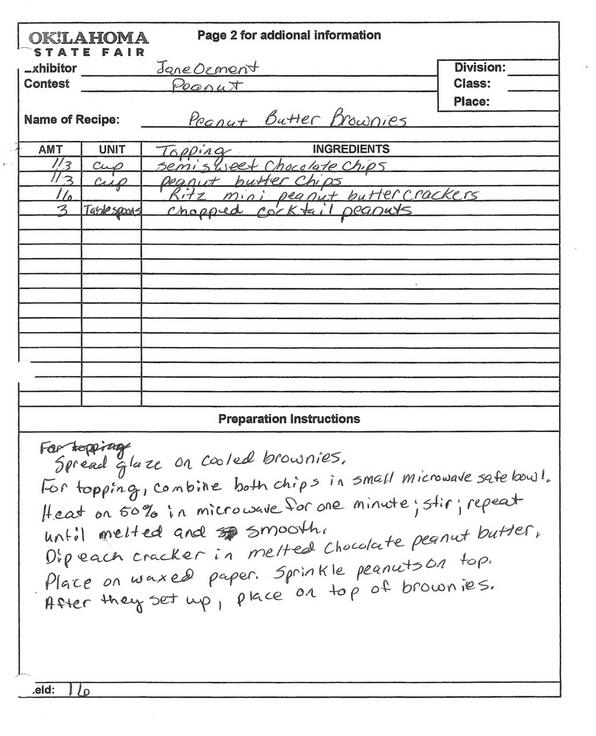 OKLAHOMA
STATE FAIR
Page 2 for addional information
xhibitor Jane Ozment
Contest Peanut
Division:
Class:
Place:
Name of Recipe: Peanut Butter Brownies
AMT UNIT Topping INGREDIENTS
1/3 cup semisweet chocolate chips
1/3 cup peanut butter chips
16 Ritz mini peanut butter crackers
3 Tablespoons chopped cocktail peanuts
Preparation Instructions
For topping
Spread glaze on cooled brownies.
For topping, combine both chips in small microwave safe bowl.
Heat on 50% in microwave for one minute; stir; repeat
until melted and smooth.
Dip each cracker in melted chocolate peanut butter.
Place on waxed paper. Sprinkle peanuts on top.
After they set up, place on top of brownies.
eld: 16